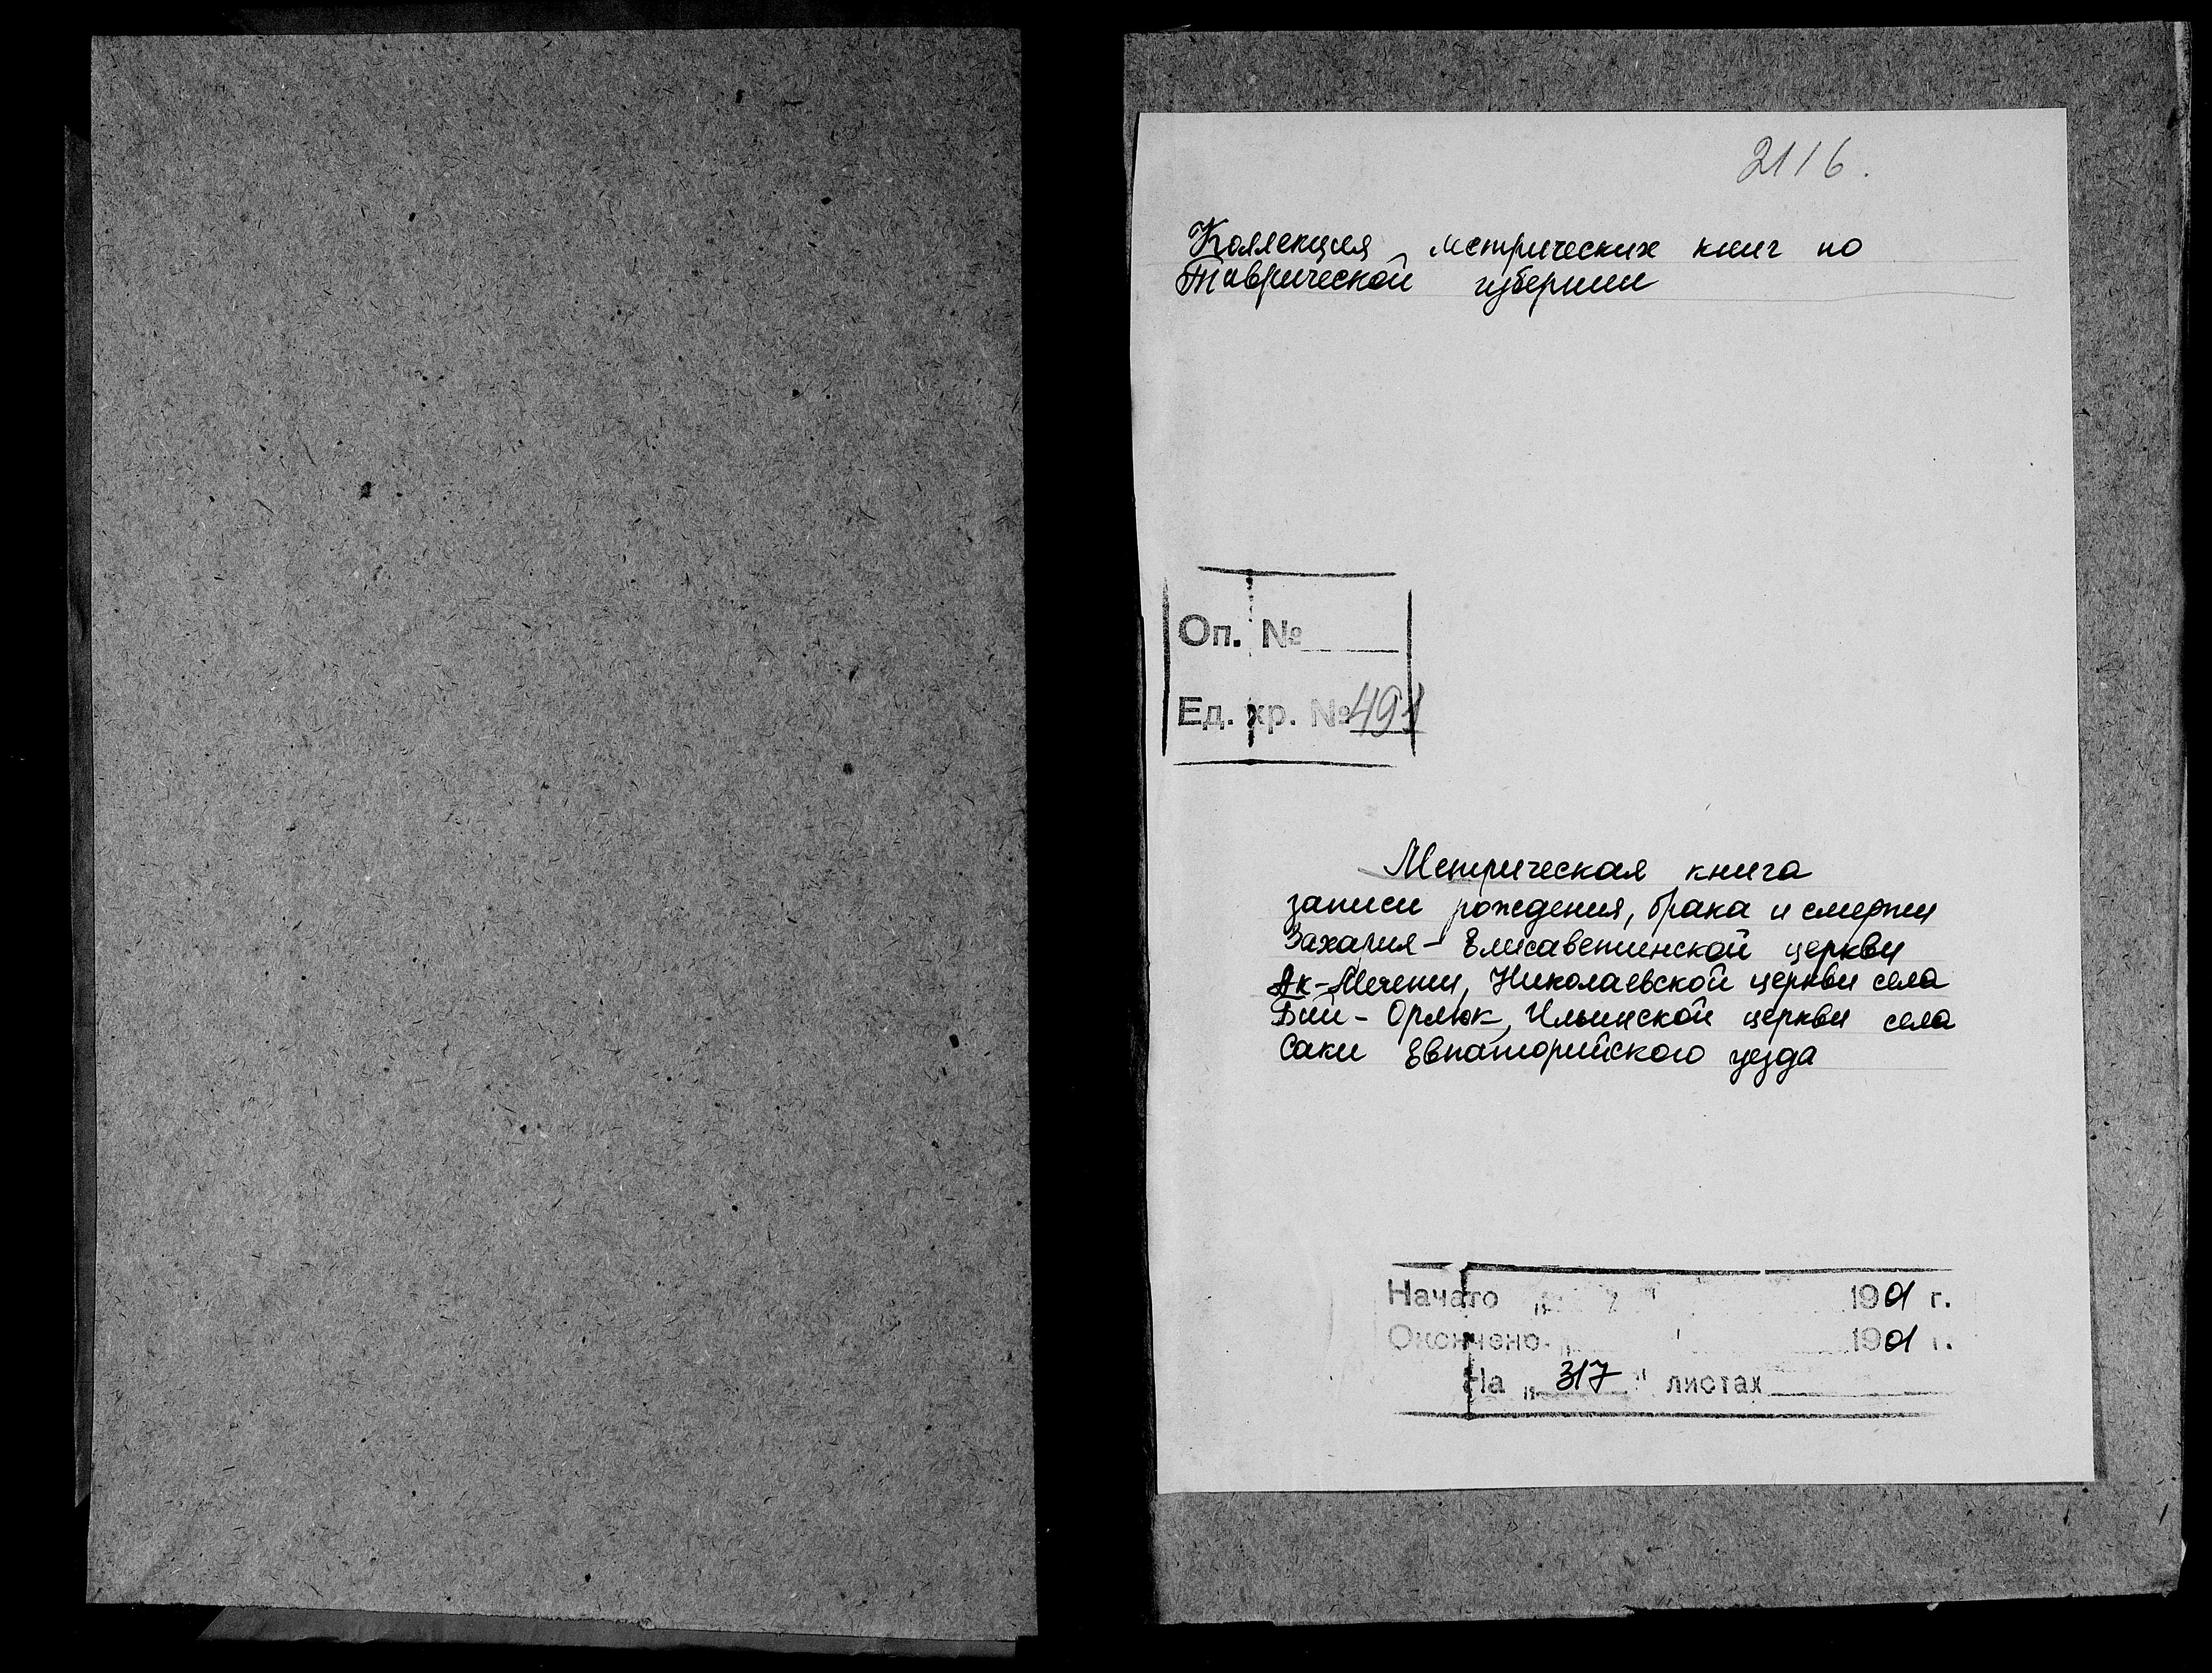 2116.
Коллекция метрических книг по
Таврической губернии
Оп. №
Ед. хр. № 491
Метрическая книга
записи рождения, брака и смерти
Захария-Елисаветинской церкви
Ак-Мечети, Николаевской церкви села
Бий-Орлюк, Ильинской церкви села
Саки Евпаторийского уезда
Начато „ " 1901 г.
Окончено „ " 1901 г.
На „317" листах